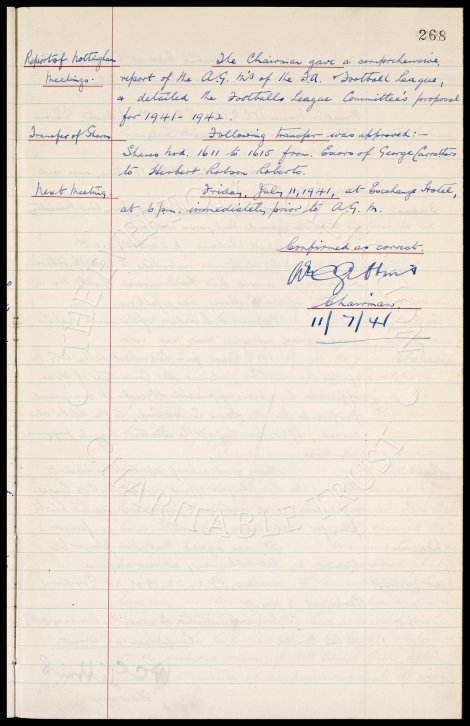 268
Report of Nottingham
Meetings.
The Chairman gave a comprehensive
report of the A.G. M's of the F.A. & Football League,
& detailed the Footballs League Committee's proposal
for 1941 - 1942.
Transfer of Shares
Following transfer was approved:-
Shares Nrd. 1611 to 1615 from Exors of George Carrothers
to Herbert Robson Roberts.
Next Meeting.
Friday, July 11, 1941, at Exchange Hotel,
at 6 p.m. immediately prior to A.G.M.
Confirmed as correct.
Chairman
11/7/41
CHARITABLE TRUST